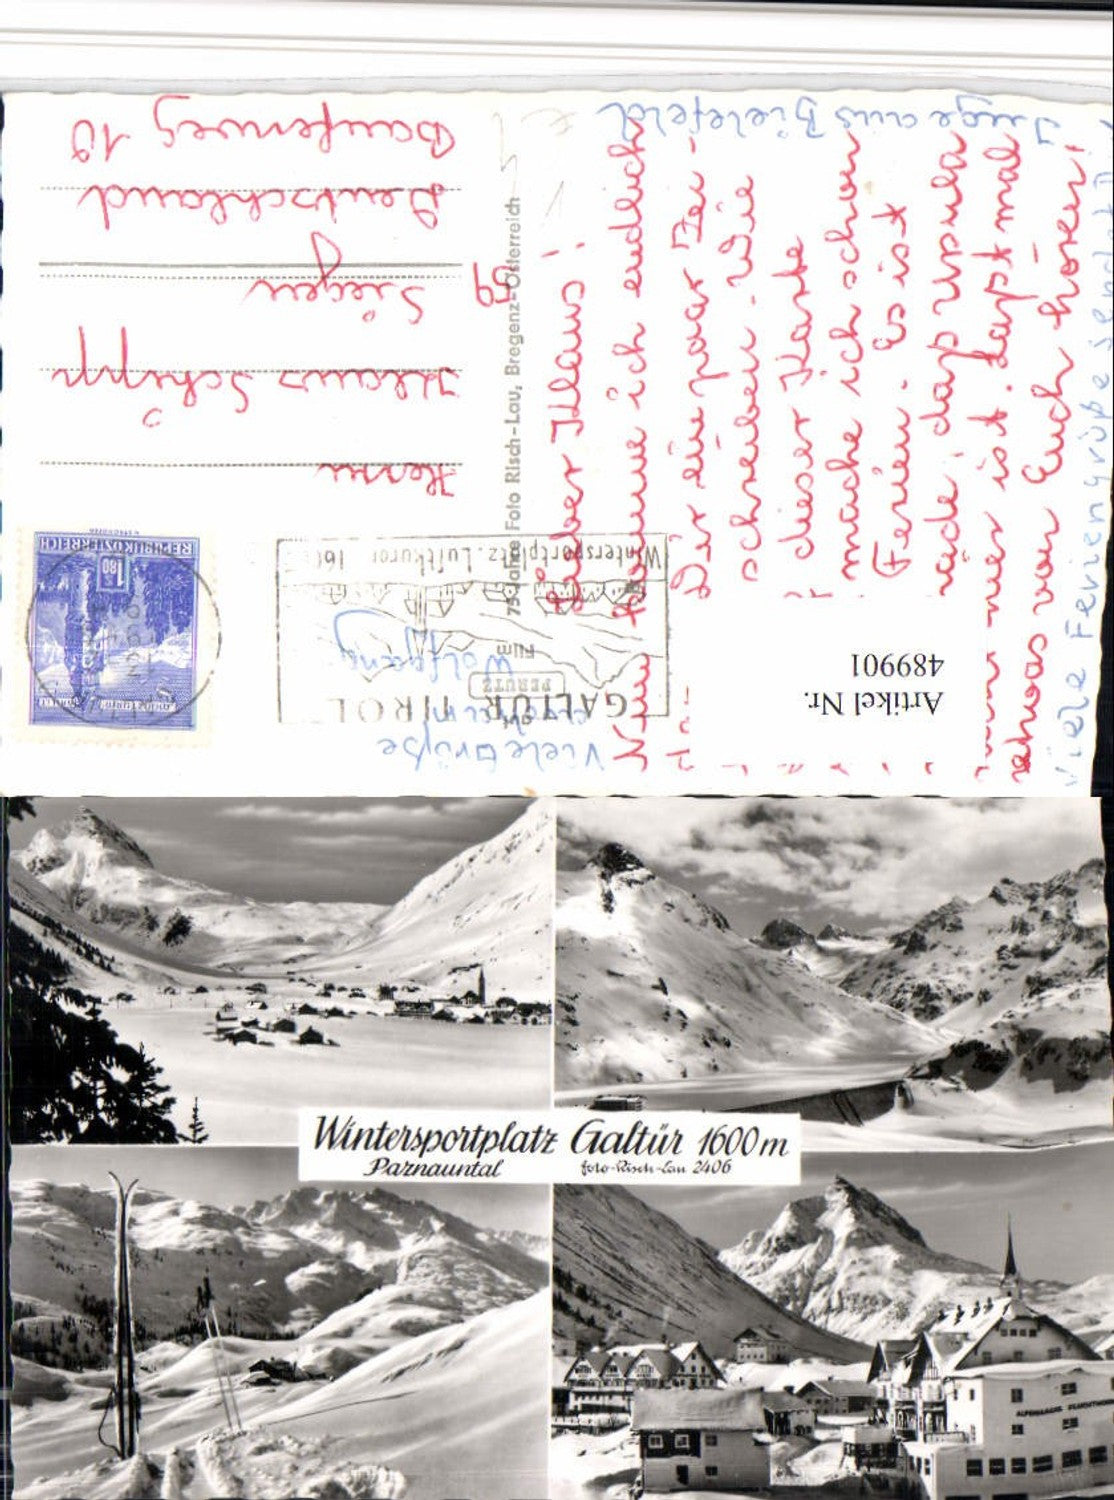 Lieber Klaus!
Nun komme ich endlich
Dir ein paar Zei-
schreiben. Wie
dieser Karte
mache ich schon
Ferien. Es ist
, daß Ursula
ist. Laßt mal
etwas von Euch hören!
Viele Feriengrüße sendet
Inge aus Bielefeld
Viele Grüße
Wolfgang
75 Jahre Foto Risch-Lau, Bregenz-Österreich
GALTÜR TIROL
PERUTZ
Film
Wintersportplatz. Luftkuror 16
REPUBLIK ÖSTERREICH
1.80
Herrn
Klaus Schipp
59 Siegen
Deutschland
Baufenweg 10
Artikel Nr.
489901
Wintersportplatz Galtür 1600m
Paznauntal foto-Risch-Lau 2406